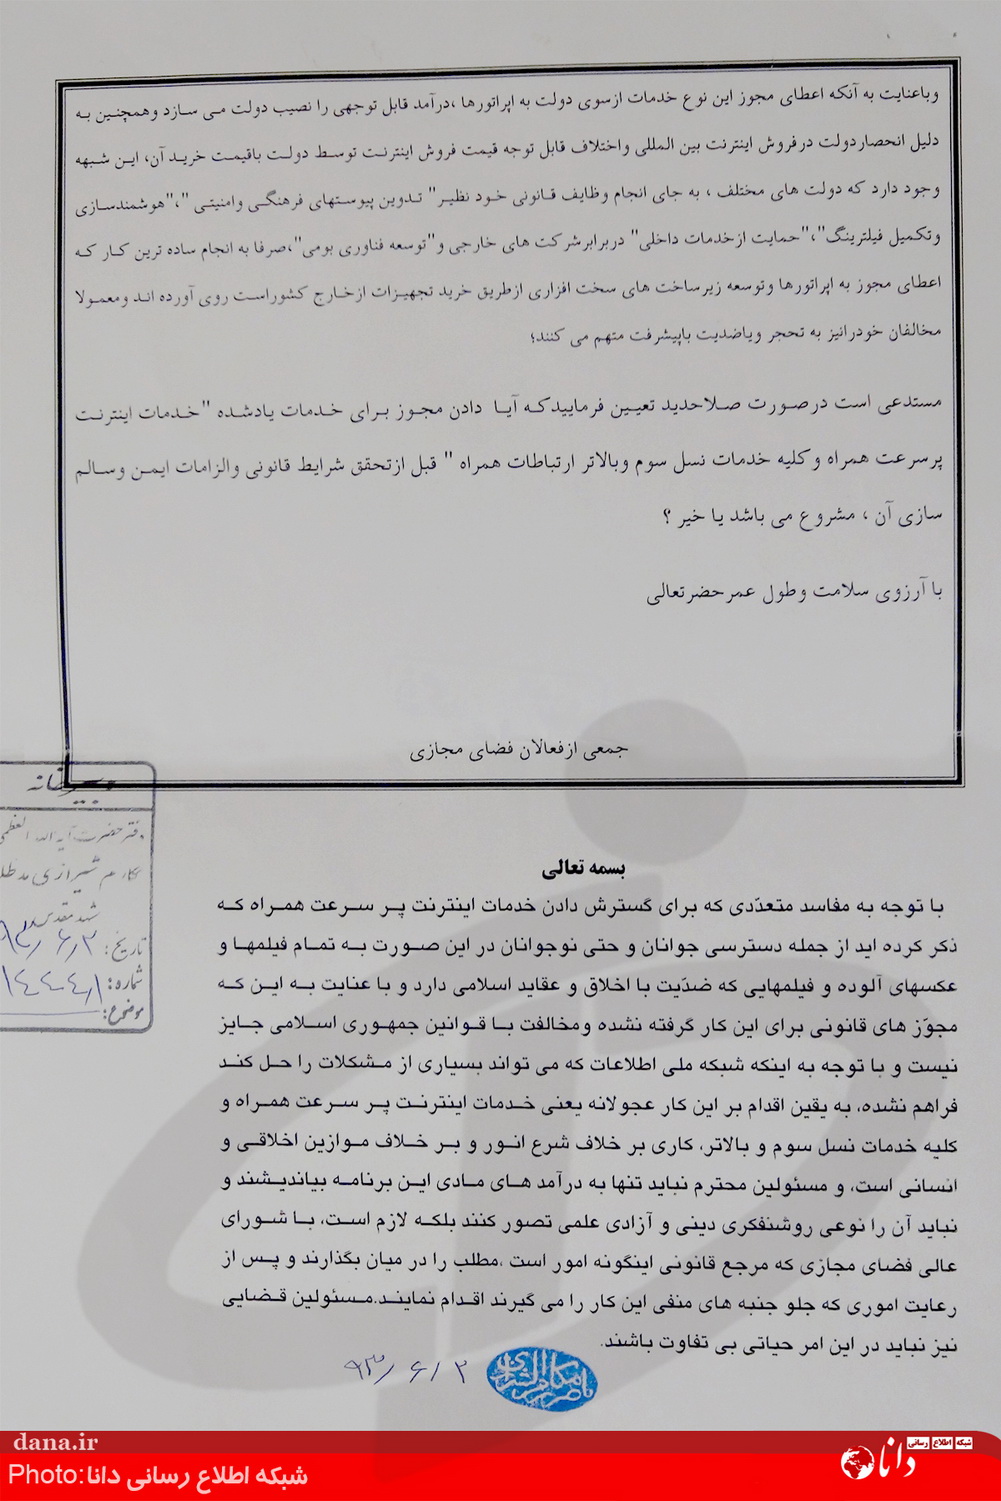 وباعنایت به آنکه اعطای مجوز این نوع خدمات ازسوی دولت به اپراتورها ،درآمد قابل توجهی را نصیب دولت می سازد وهمچنین به
دلیل انحصاردولت درفروش اینترنت بین المللی واختلاف قابل توجه قیمت فروش اینترنت توسط دولت باقیمت خرید آن، این شبهه
وجود دارد که دولت های مختلف ، به جای انجام وظایف قانونی خود نظیر" تدوین پیوستهای فرهنگی وامنیتی "،"هوشمندسازی
وتکمیل فیلترینگ"،"حمایت ازخدمات داخلی" دربرابرشرکت های خارجی و"توسعه فناوری بومی"،صرفا به انجام ساده ترین کار که
اعطای مجوز به اپراتورها وتوسعه زیرساخت های سخت افزاری ازطریق خرید تجهیزات ازخارج کشوراست روی آورده اند ومعمولا
مخالفان خودرانیز به تحجر ویاضدیت باپیشرفت متهم می کنند؛
مستدعی است درصورت صلاحدید تعیین فرماییدکه آیا دادن مجوز برای خدمات یادشده "خدمات اینترنت
پرسرعت همراه وکلیه خدمات نسل سوم وبالاتر ارتباطات همراه " قبل ازتحقق شرایط قانونی والزامات ایمن وسالم
سازی آن ، مشروع می باشد یا خیر ؟
با آرزوی سلامت وطول عمرحضرتعالی
جمعی ازفعالان فضای مجازی
دبیرخانه
دفتر حضرت آیه الله العظمی
مکارم شیرازی مدظله
مشهد مقدس
تاریخ: ۹۳/۶/۲
شماره:
موضوع:
بسمه تعالی
با توجه به مفاسد متعدّدی که برای گسترش دادن خدمات اینترنت پر سرعت همراه که
ذکر کرده اید از جمله دسترسی جوانان و حتی نوجوانان در این صورت به تمام فیلمها و
عکسهای آلوده و فیلمهایی که ضدّیت با اخلاق و عقاید اسلامی دارد و با عنایت به این که
مجوّز های قانونی برای این کار گرفته نشده ومخالفت با قوانین جمهوری اسلامی جایز
نیست و با توجه به اینکه شبکه ملی اطلاعات که می تواند بسیاری از مشکلات را حل کند
فراهم نشده، به یقین اقدام بر این کار عجولانه یعنی خدمات اینترنت پر سرعت همراه و
کلیه خدمات نسل سوم و بالاتر، کاری بر خلاف شرع انور و بر خلاف موازین اخلاقی و
انسانی است، و مسئولین محترم نباید تنها به درآمد های مادی این برنامه بیاندیشند و
نباید آن را نوعی روشنفکری دینی و آزادی علمی تصور کنند بلکه لازم است، با شورای
عالی فضای مجازی که مرجع قانونی اینگونه امور است ،مطلب را در میان بگذارند و پس از
رعایت اموری که جلو جنبه های منفی این کار را می گیرند اقدام نمایند.مسئولین قضایی
نیز نباید در این امر حیاتی بی تفاوت باشند.
ناصر مکارم الشیرازی
۹۳/۶/۲
dana.ir
Photo:شبکه اطلاع رسانی دانا
شبکه اطلاع رسانی
دانا